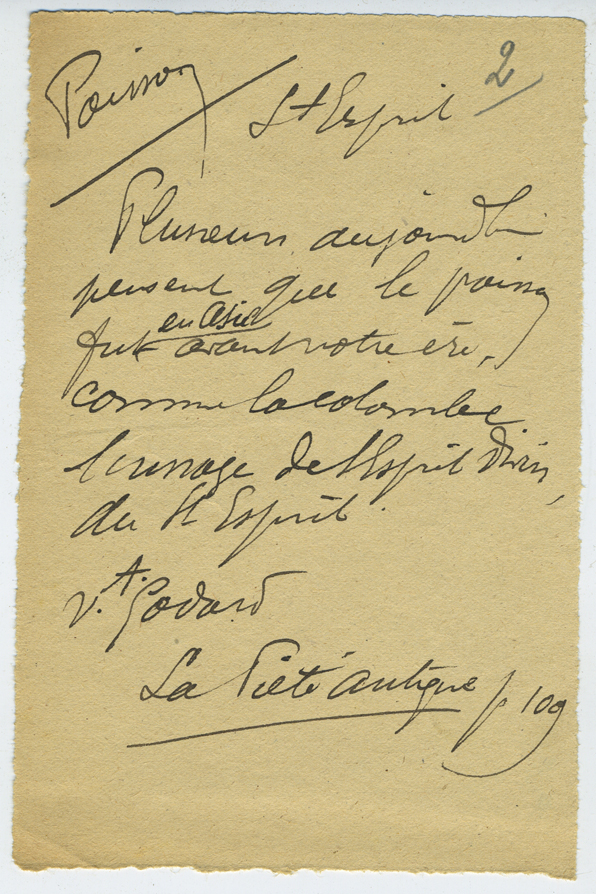 Poisson
2
St Esprit
Plusieurs aujourd'hui
pensent que le poisson
en Asie
fut avant notre ère,
comme la colombe
l'image de l'Esprit divin,
du St Esprit.
v. A. Godard
La Piété antique p 109